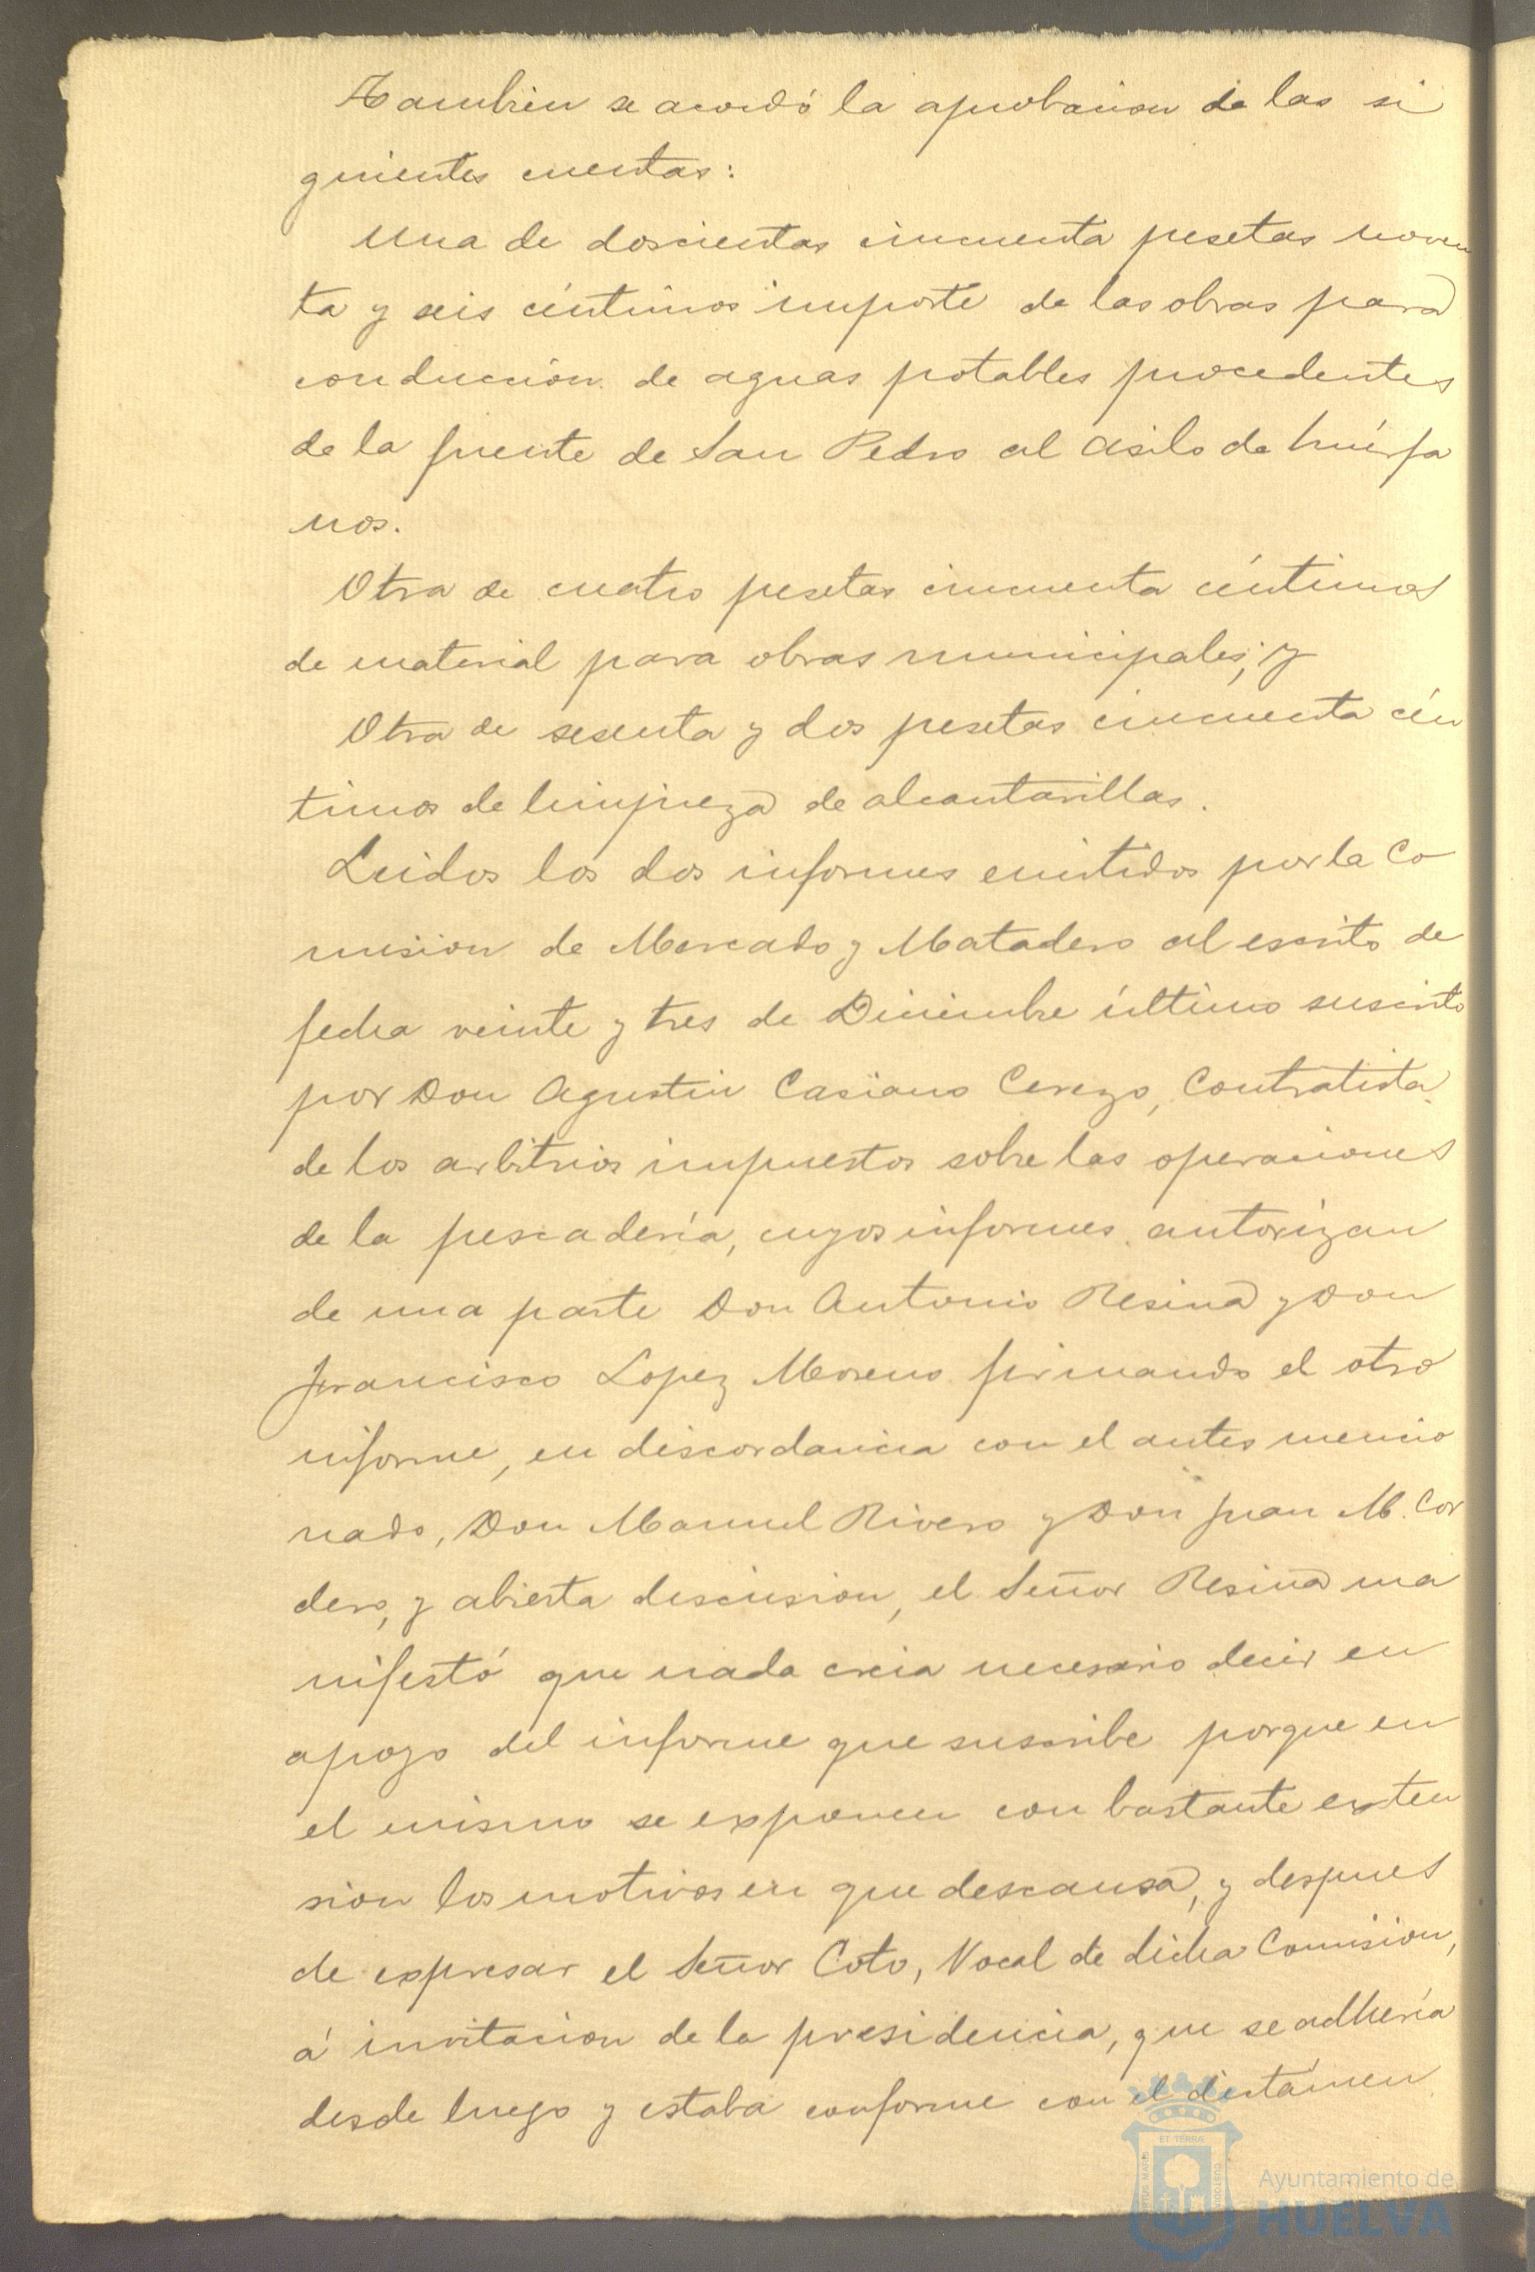 Tambien se acordó la aprobacion de las si
guientes cuentas:
Una de doscientas cincuenta pesetas noven
ta y seis céntimos importe de las obras para
conduccion de aguas potables procedentes
de la fuente de San Pedro al asilo de huérfa
nos.
Otra de cuatro pesetas cincuenta céntimos
de material para obras municipales; y
Otra de sesenta y dos pesetas cincuenta cén
timos de limpieza de alcantarillas.
Leidos los dos informes emitidos por la Co
mision de Mercado y Matadero al escrito de
fecha veinte y tres de Diciembre último suscrito
por Don Agustin Casiano Cerezo, Contratista
de los arbitrios impuestos sobre las operaciones
de la pescadería, cuyos informes autorizan
de una parte Don Antonio Resina y Don
Francisco Lopez Moreno firmando el otro
informe, en discordancia con el antes mencio
nado, Don Manuel Rivero y Don Juan M. Cor
dero, y abierta discusion, el Señor Resina ma
nifestó que nada creia necesario decir en
apoyo del informe que suscribe porque en
el mismo se exponen con bastante exten
sion los motivos en que descansa, y despues
de expresar el Señor Coto, Vocal de dicha Comision,
á invitacion de la presidencia, que se adhería
desde luego y estaba conforme con el dictámen
Ayuntamiento de
HUELVA